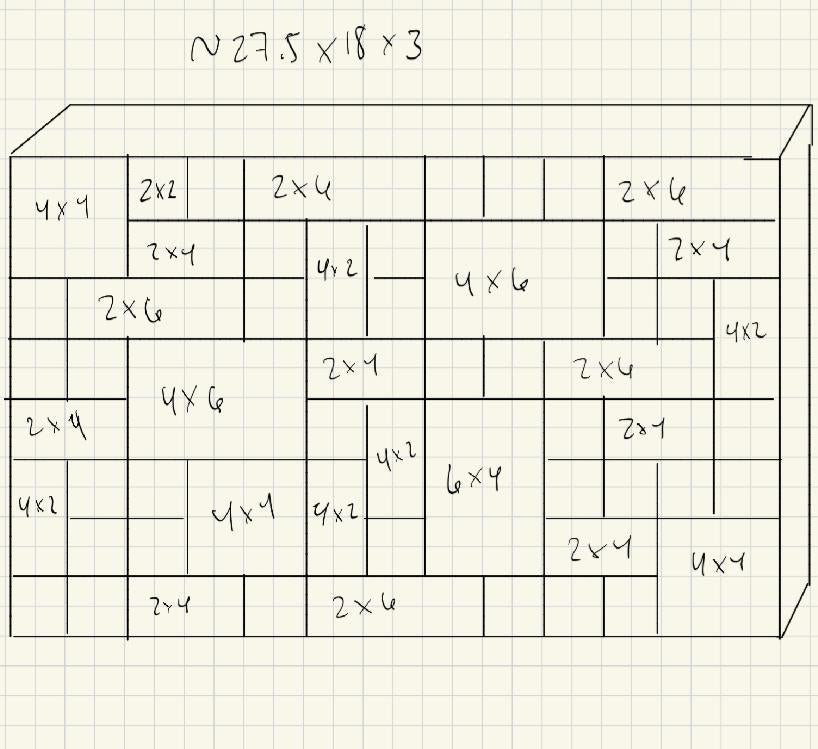 ~ 27.5 x 18 x 3
4x4 2x2 2x6 2x6
2x4 4x2 4x6 2x4
2x6 4x2
4x6 2x4 2x6
2x4 2x4
4x2 4x4 4x2 4x2 6x4
2x4 4x4
2x4 2x6